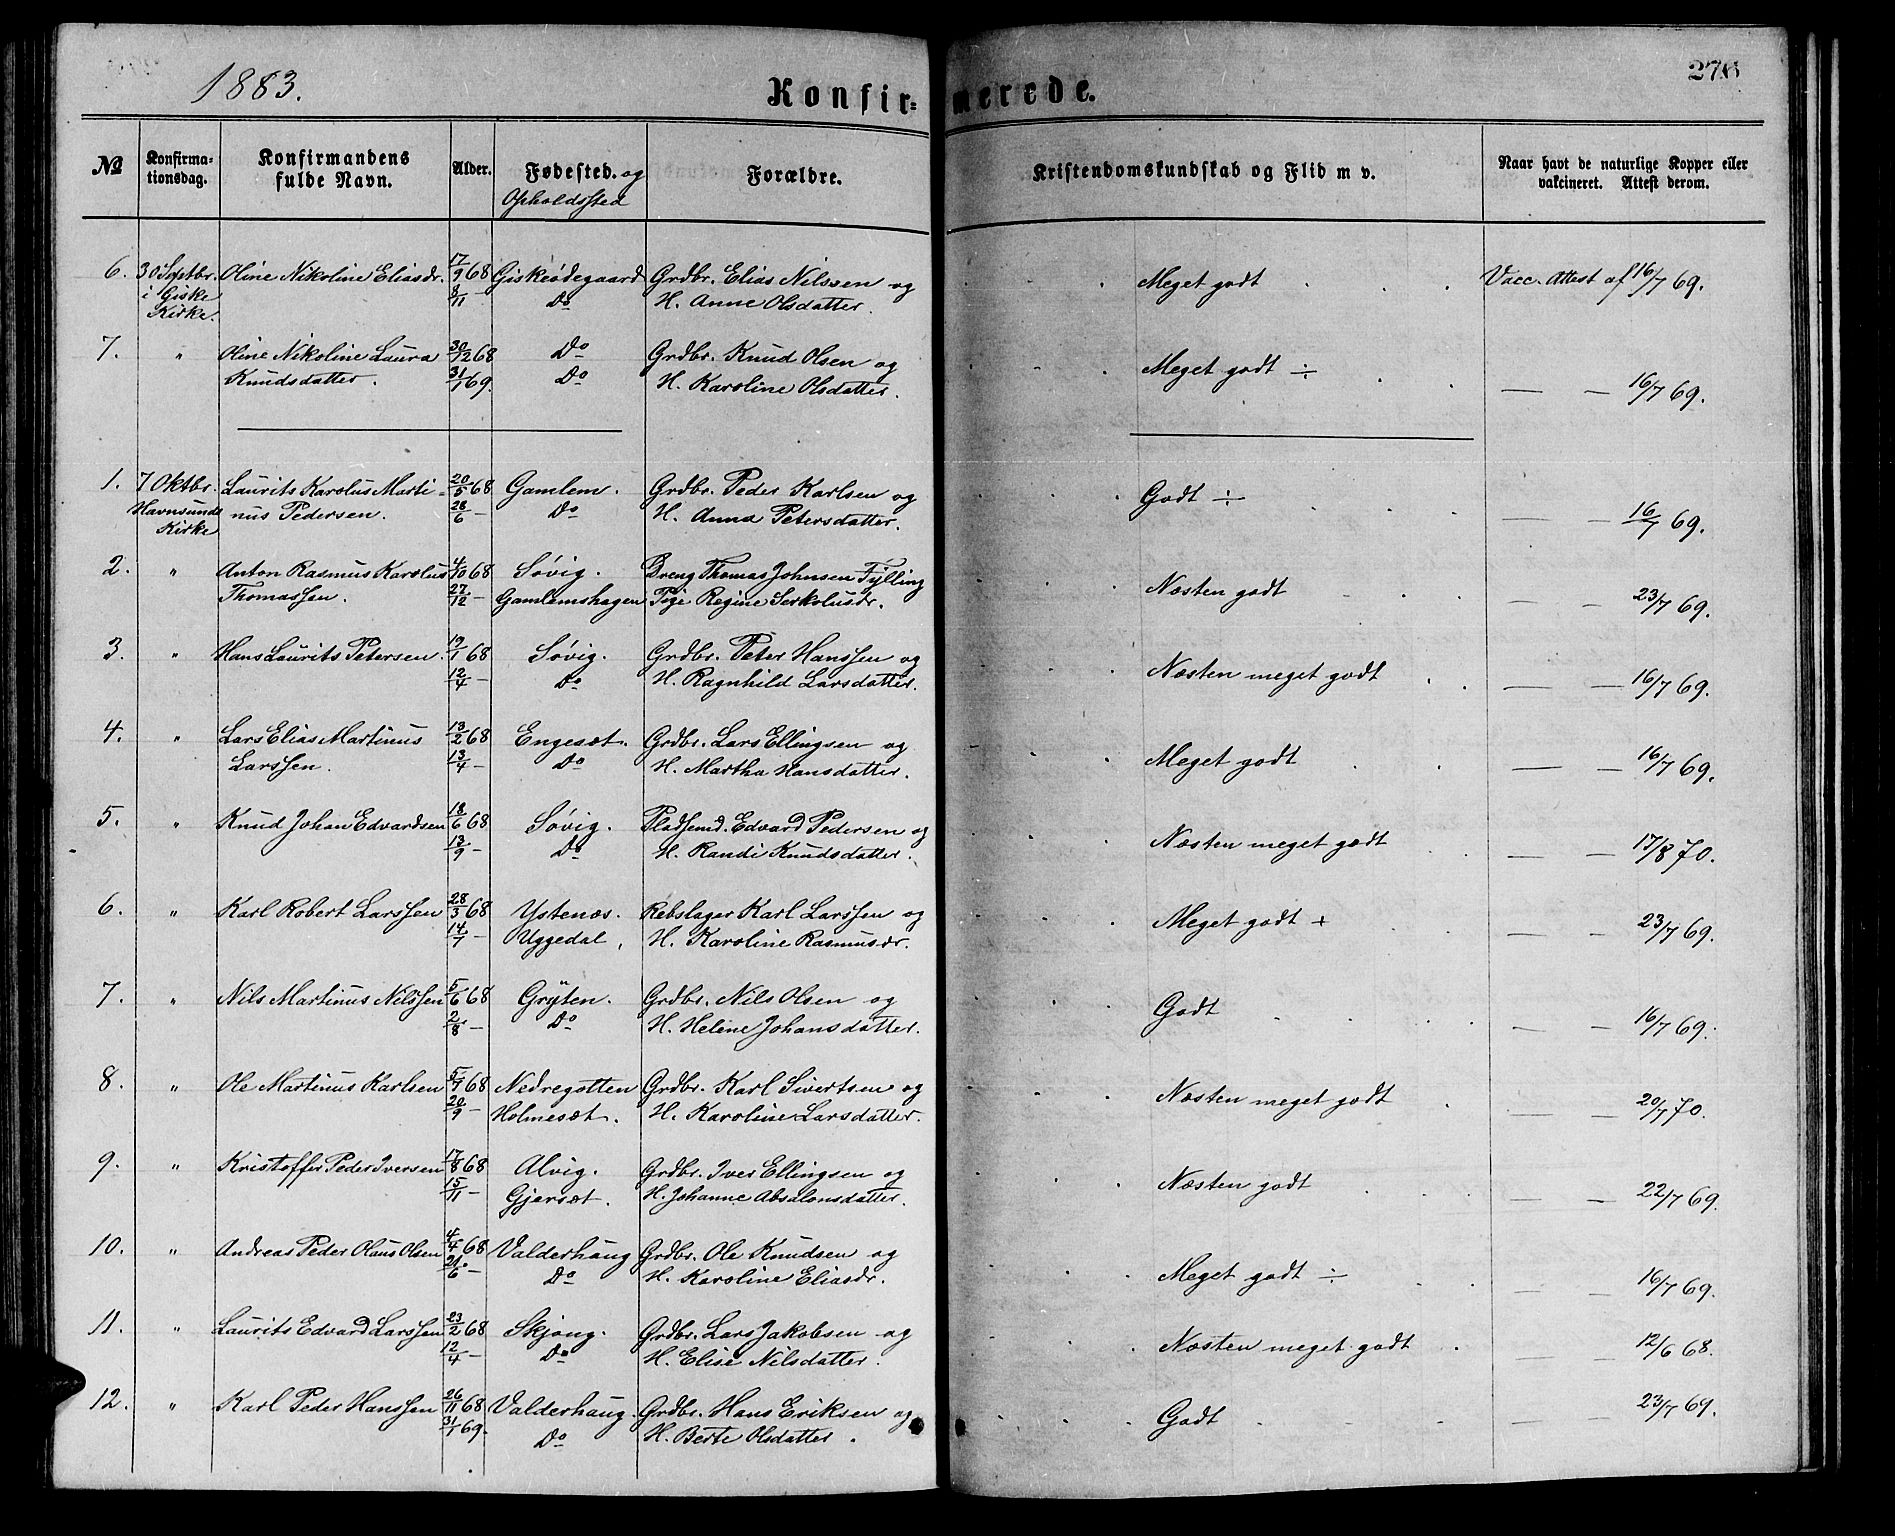 1883.
Konfirmerede.
276
No
Konfirma-
tionsdag.
Konfirmandens
fulde Navn.
Alder.
Fødested. og
Opholdssted
Forældre.
Kristendomskundskab og Flid m v.
Naar havt de naturlige Kopper eller
vakcineret. Attest derom.
6. 30 Septbr. Oline Nikoline Eliasdr. 17/9 68 Giskeødegaard Grdbr. Elias Nilssen og Meget godt Vacc. Attest af 16/7 69.
i Giske 8/11 Do H. Anne Olsdatter.
Kirke.
7. " Oline Nikoline Laura 30/12 68 Do Grdbr. Knud Olsen og Meget godt ÷ — — 16/7 69.
Knudsdatter. 31/1 69. Do H. Karoline Olsdatter.
1. 7 Oktbr. Laurits Karolus Marti- 20/5 68 Gamlem. Grdbr. Peder Karlsen og Godt ÷ — — 16/7 69.
Havnsunds nus Pedersen. 28/6 — Do H. Anna Petersdatter.
Kirke
2. " Anton Rasmus Karolus 4/10 68 Søvig. Dreng Thomas Johnsen Fylling Næsten godt — — 23/7 69.
Thomassen. 27/12 — Gamlemshagen Pige Regine Serkolusdr.
3. " Hans Laurits Petersen. 19/1 68 Søvig. Grdbr. Peter Hanssen og Næsten meget godt — — 16/7 69.
12/4 — Do H. Ragnhild Larsdatter.
4. " Lars Elias Martinus 13/2 68 Engesæt. Grdbr. Lars Ellingsen og Meget godt — — 16/7 69.
Larssen. 13/4 — Do H. Martha Hansdatter.
5. " Knud Johan Edvardsen 18/6 68 Søvig. Pladsemd. Edvard Pedersen og Næsten meget godt — — 17/8 70.
13/9 — Do H. Randi Knudsdatter.
6. " Karl Robert Larssen 28/3 68 Ystenæs. Rebslager Karl Larssen og Meget godt + — — 23/7 69.
14/7 — Uggedal. H. Karoline Rasmusdr.
7. " Nils Martinus Nilssen 5/6 68 Gryten. Grdbr. Nils Olsen og Godt — — 16/7 69.
2/8 — Do H. Heline Johansdatter.
8. " Ole Martinus Karlsen 5/7 68 Nedregotten Grdbr. Karl Sivertsen og Næsten meget godt — — 20/7 70.
20/9 — Holmesæt. H. Karoline Larsdatter.
9. " Kristoffer Peder Iversen 17/8 68 Alvig. Grdbr. Iver Ellingsen og Næsten godt — — 22/7 69.
15/11 — Gjersæt. H. Johanne Absalonsdatter.
10. " Andreas Peder Olaus Olsen 4/4 68 Valderhaug Grdbr. Ole Knudsen og Meget godt ÷ — — 16/7 69.
21/6 — Do H. Karoline Eliasdr.
11. " Laurits Edvard Larssen 23/2 68 Skjong. Grdbr. Lars Jakobsen og Næsten meget godt — — 12/6 68.
12/4 — Do H. Elise Nilsdatter.
12. " Karl Peder Hanssen 26/11 68 Valderhaug. Grdbr. Hans Eriksen og Godt — — 23/7 69.
31/1 69. Do H. Berte Olsdatter.